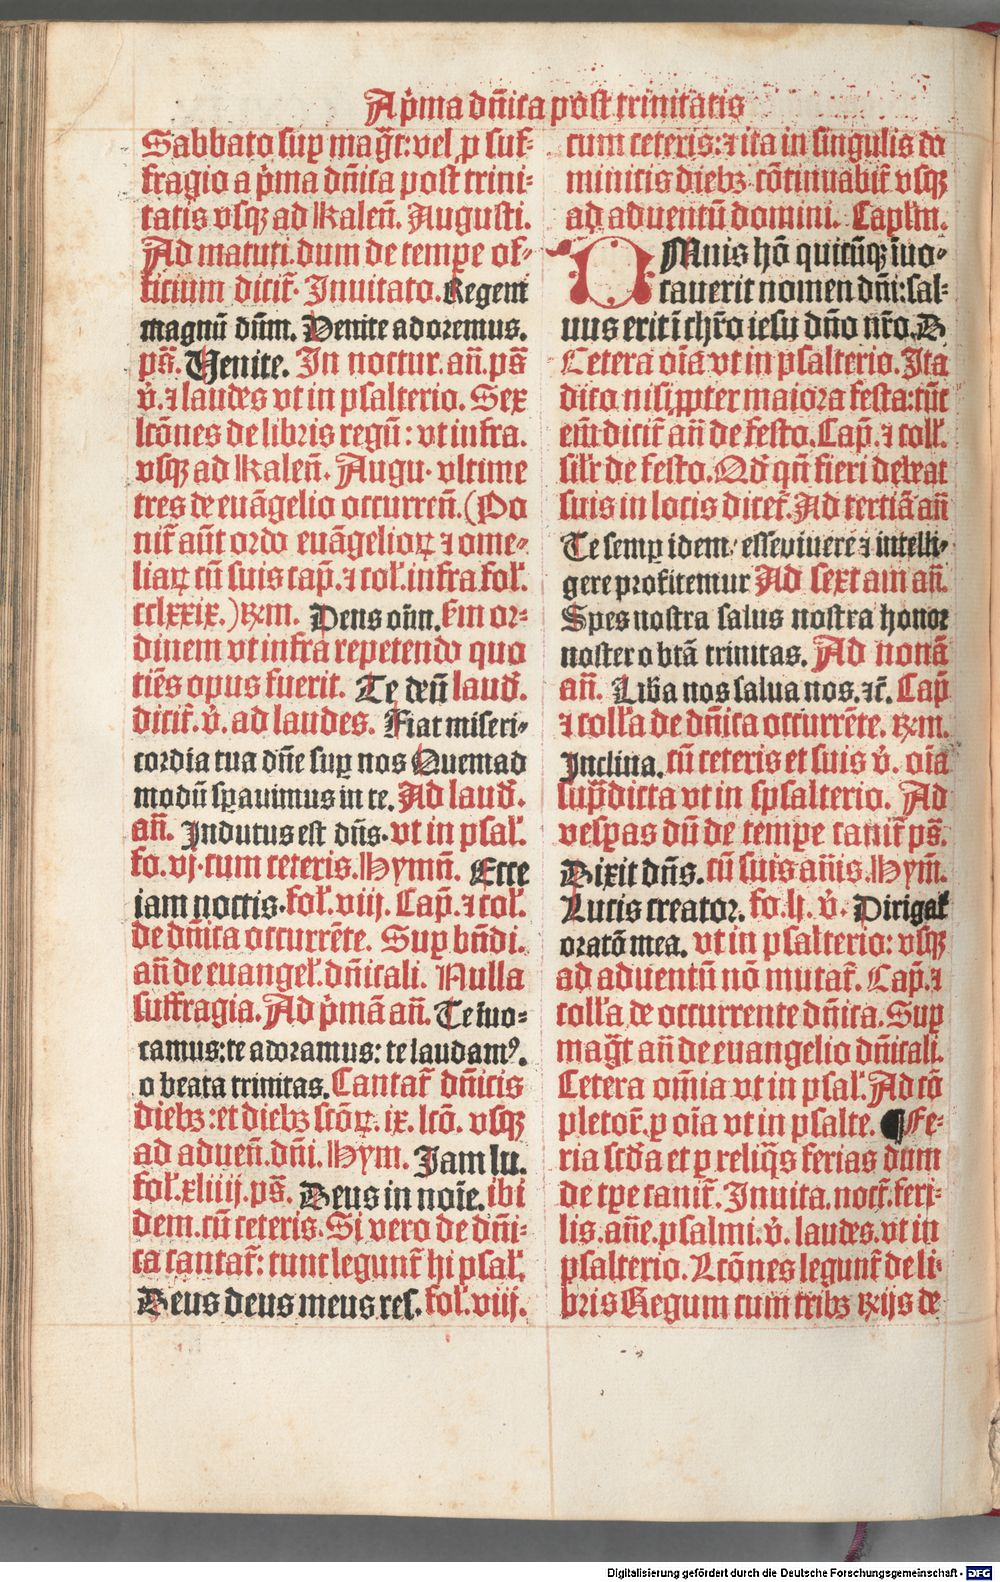 A p̄ma dn̄ica post trinitatis
Sabbato sup magt̄: vel p suf-
fragio a p̄ma dn̄ica post trini-
tatis vsqȝ ad Kalen̄. Augusti.
Ad matuti. dum de tempe of-
ficium dicit̄. Inuitato. Regem
magnū dūm. Venite adoremus.
ps̄. Venite. In noctur. an̄. ps̄
v̄. ⁊ laudes vt in psalterio. Sex
lcōnes de libris regū: vt infra.
vsqȝ ad Kalen̄. Augu. vltime
tres de euāgelio occurren̄. (Po
nit̄ aūt ordo euāgelioꝝ ⁊ ome-
liaꝝ cū suis cap̄. ⁊ col̄. infra fol̄.
cclxxix.) Rm. Deus om̄. sm or-
dinem vt infra repetendo quo
tiēs opus fuerit. Te deū laud̄.
dicit̄. v̄. ad laudes. Fiat miseri-
cordia tua dn̄e sup nos Quemad
modū spauimus in te. Ad laud̄.
an̄. Indutus est dn̄s. vt in psal̄.
fo. vj. cum ceteris. Hymn̄. Ecce
iam noctis. fol̄. viij. Cap̄. ⁊ col̄.
de dn̄ica occurrēte. Sup bn̄di.
an̄ de euangel̄. dn̄icali. Nulla
suffragia. Ad p̄mā an̄. Te inuo-
camus: te adoramus: te laudamꝰ.
o beata trinitas. Cantat̄ dn̄icis
diebȝ: et diebȝ scōꝝ. ix. lcō. vsqȝ
ad aduen̄. dn̄i. Hym. Jam lu.
fol̄. xliiij. ps̄. Deus in noīe. ibi
dem. cū ceteris. Si vero de dn̄i-
ca cantat̄: tunc legunt̄ hi psal̄.
Deus deus meus res. fol̄. viij.
cum ceteris: ⁊ ita in singulis do
minicis diebȝ cōtinuabit̄ vsqȝ
ad aduentū domini. Caplm̄.
OMnis hō quicūqȝ īuo-
cauerit nomen dn̄i: sal-
uus erit ī chr̄o iesu dn̄o nr̄o. R
Cetera oīa vt in psalterio. Ita
dico nisi ꝓpter maiora festa: tūc
em̄ dicit̄ an̄ de festo. Cap̄. ⁊ coll̄.
silr̄ de festo. Qd̄ qn̄ fieri debeat
suis in locis dicet̄. Ad tertiā an̄
Te semp idem esse viuere ⁊ intelli-
gere profitemur Ad sextam an̄.
Spes nostra salus nostra honor
noster o btā trinitas. Ad nonā
an̄. Liba nos salua nos. ⁊c̄. Cap̄
⁊ coll̄a de dn̄ica occurrēte. Rm.
Inclina. cū ceteris et suis v̄. oīa
sup̄dicta vt in spsalterio. Ad
vespas dū de tempe canit̄ ps̄.
Dixit dn̄s. cū suis an̄is. Hym̄.
Lucis creator. fo. lj. v̄. Dirigat̄
oratō mea. vt in psalterio: vsqȝ
ad aduentū nō mutat̄. Cap̄. ⁊
coll̄a de occurrente dn̄ica. Sup
magt̄ an̄ de euangelio dn̄icali.
Cetera om̄ia vt in psal̄. Ad cō
pletor̄. p oīa vt in psalte. ¶ Fe-
ria scd̄a et p reliq̄s ferias dum
de tpe canit̄. Inuita. noct̄. feri-
lis. an̄e. psalmi. v̄. laudes. vt in
psalterio. Lcōnes legunt̄ de li-
bris Regum cum tribȝ Rijs de
Digitalisierung gefördert durch die Deutsche Forschungsgemeinschaft - DFG